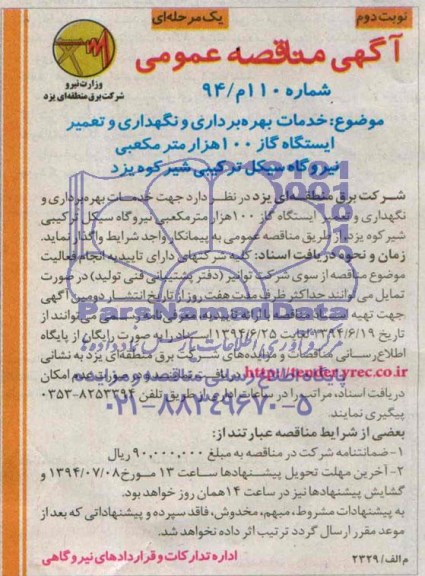 نوبت دوم
یک مرحله‌ای
آگهی مناقصه عمومی
وزارت نیرو
شرکت برق منطقه‌ای یزد
شماره ۱۱۰م/۹۴
موضوع: خدمات بهره‌برداری و نگهداری و تعمیر
ایستگاه گاز ۱۰۰هزار متر مکعبی
نیروگاه سیکل ترکیبی شیرکوه یزد
شرکت برق منطقه‌ای یزد در نظر دارد جهت خدمات بهره‌برداری و
نگهداری و تعمیر ایستگاه گاز ۱۰۰هزار مترمکعبی نیروگاه سیکل ترکیبی
شیرکوه یزد از طریق مناقصه عمومی به پیمانکار واجد شرایط واگذار نماید.
زمان و نحوه دریافت اسناد: کلیه شرکتهای دارای تاییدیه انجام فعالیت
موضوع مناقصه از سوی شرکت توانیر (دفتر پشتیبانی فنی تولید) در صورت
تمایل می‌توانند حداکثر ظرف مدت هفت روز از تاریخ انتشار دومین آگهی
جهت تهیه اسناد مناقصه با ارائه تاییدیه معرفی نامه رسمی می‌توانند از
تاریخ ۱۳۹۴/۶/۱۹ لغایت ۱۳۹۴/۶/۲۵ اسناد را به صورت رایگان از پایگاه
اطلاع رسانی مناقصات و مزایده‌های شرکت برق منطقه‌ای یزد به نشانی
http://tender.yrec.co.ir دریافت نمایند و در صورت عدم امکان
دریافت اسناد، مراتب را در ساعات اداری از طریق تلفن ۸۲۵۳۳۹۴-۰۳۵۳
پیگیری نمایند.
بعضی از شرایط مناقصه عبارتند از:
۱- ضمانتنامه شرکت در مناقصه به مبلغ ۹۰,۰۰۰,۰۰۰ ریال
۲- آخرین مهلت تحویل پیشنهادها ساعت ۱۳ مورخ ۱۳۹۴/۰۷/۰۸ و
گشایش پیشنهادها نیز در ساعت ۱۴ همان روز خواهد بود.
به پیشنهادات مشروط، مبهم، مخدوش، فاقد سپرده و پیشنهاداتی که بعد از
موعد مقرر ارسال گردد ترتیب اثر داده نخواهد شد.
م الف/ ۲۳۲۹
اداره تدارکات و قراردادهای نیروگاهی
ParsNamadData
پایگاه اطلاع رسانی مناقصه و مزایده
۰۲۱-۸۸۳۴۹۶۷۰-۵